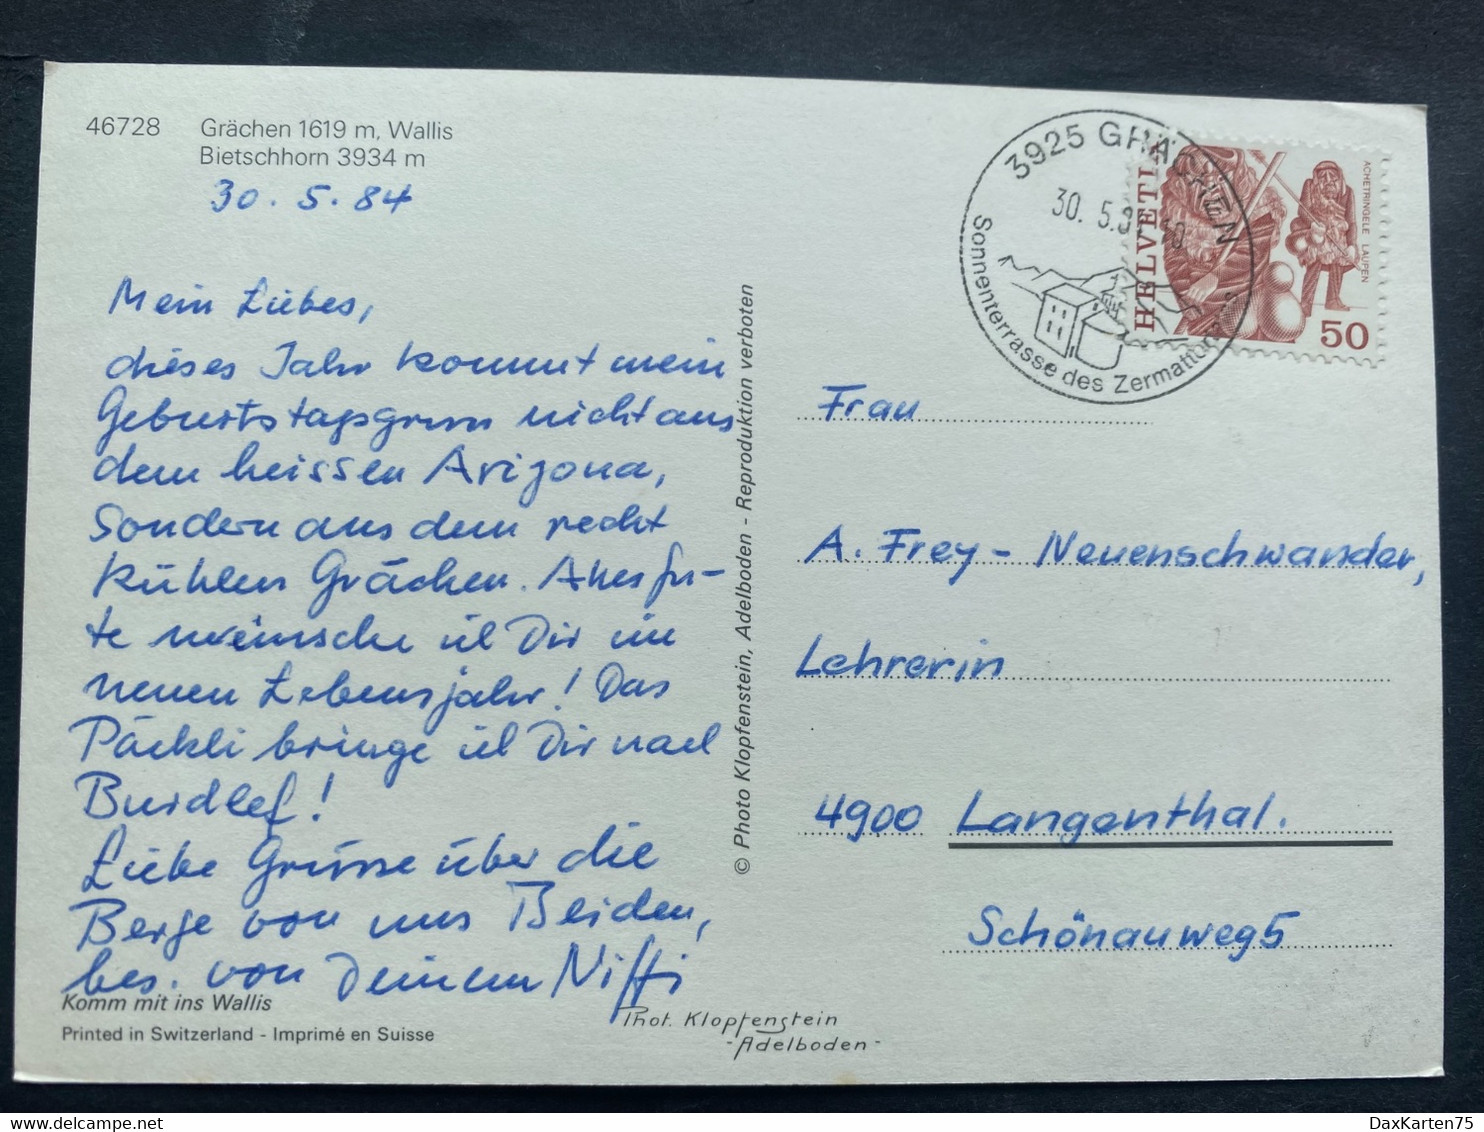 46728 Grächen 1619 m, Wallis
Bietschhorn 3934 m
30. 5. 84
Mein Liebes,
dieses Jahr kommt mein
Geburtstagsgruss nicht aus
dem heissen Arizona,
sondern aus dem recht
kühlen Grächen. Alles gu-
te wünsche ich Dir im
neuen Lebensjahr! Das
Päckli bringe ich Dir nach
Burdlef!
Liebe Grüsse über die
Berge von uns Beiden,
bes. von Deinem Niffi
Komm mit ins Wallis
Printed in Switzerland - Imprimé en Suisse
Phot. Klopfenstein
- Adelboden -
© Photo Klopfenstein, Adelboden - Reproduktion verboten
3925 GRÄCHEN
30. 5.
Sonnenterrasse des Zermattertals
HELVETIA
ACHETRINGELE LAUPEN
50
Frau
A. Frey - Neuenschwander,
Lehrerin
4900 Langenthal.
Schönauweg 5
DaxKarten75